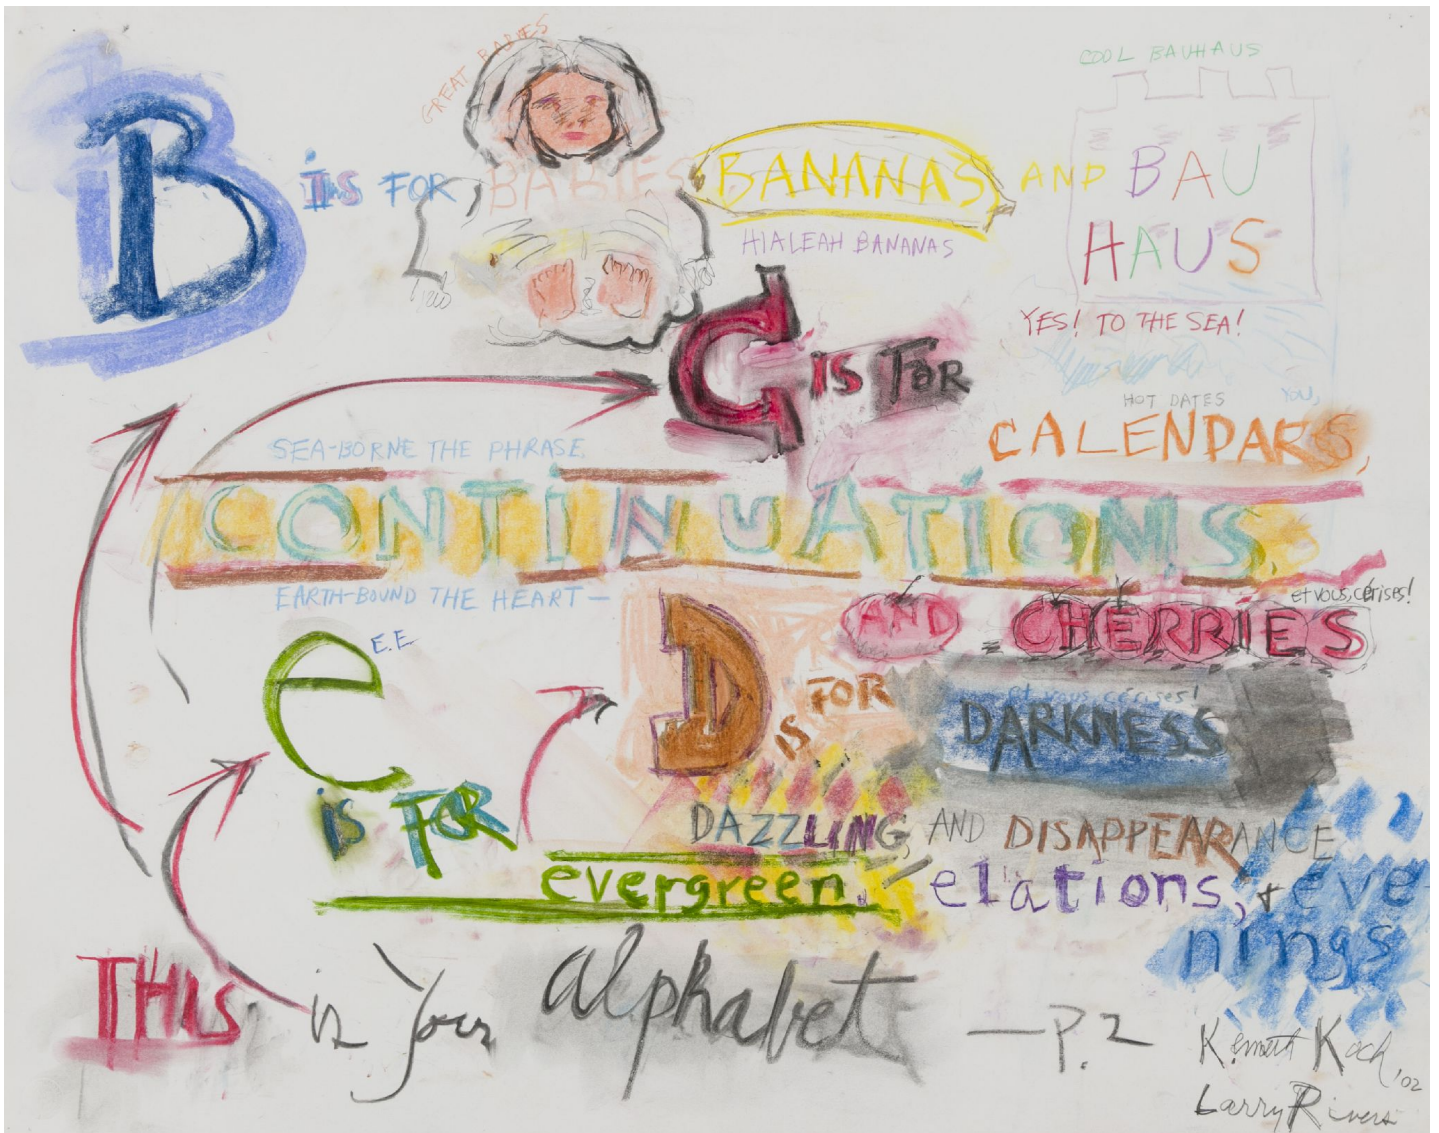 GREAT BABIES
COOL BAUHAUS
B IS FOR BABIES BANANAS AND BAU
HAUS
HIALEAH BANANAS
YES! TO THE SEA!
C IS FOR
HOT DATES
YOU,
CALENDARS,
SEA-BORNE THE PHRASE
CONTINUATIONS,
EARTH-BOUND THE HEART—
AND CHERRIES
et vous, cérises!
D IS FOR
et vous, cérises!
DARKNESS
DAZZLING, AND DISAPPEARANCE
E.E
e is FOR
evergreen, elations, + eve
nings
THIS is Your alphabet —P. 2
Kenneth Koch
'02
Larry Rivers